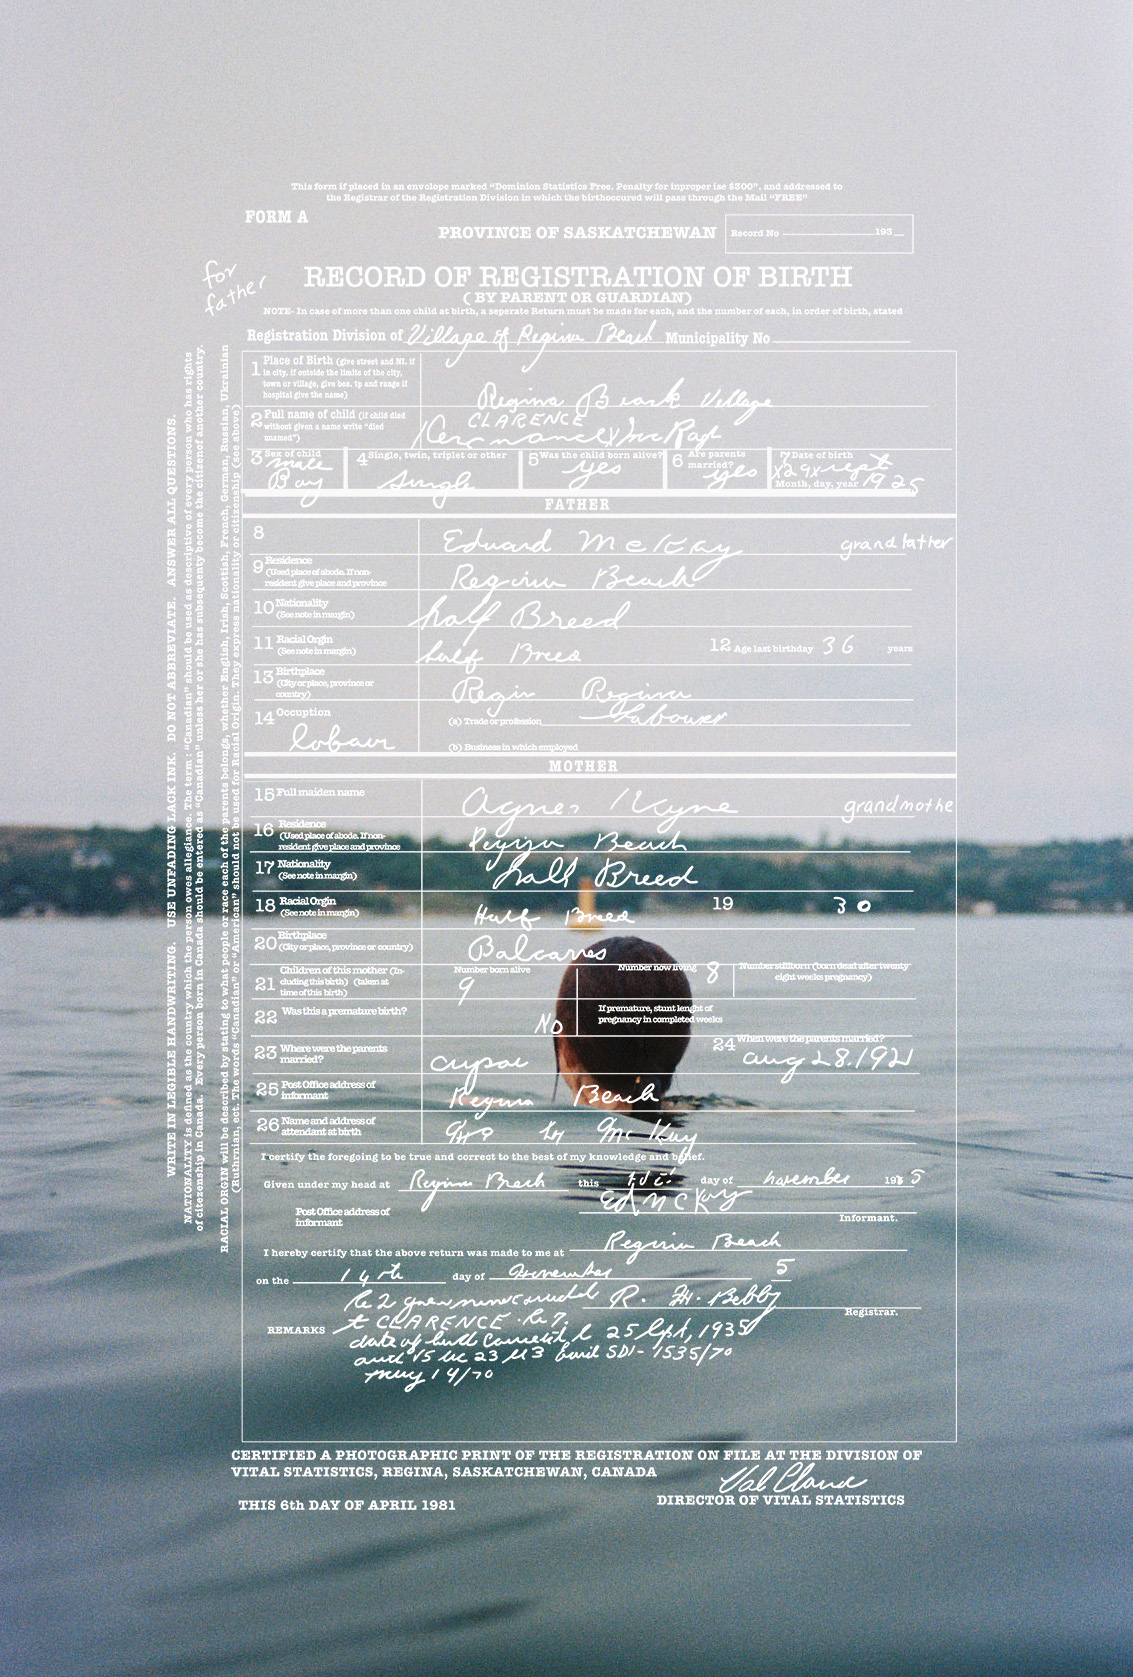 This form if placed in an envolope marked “Dominion Statistics Free. Penalty for inproper ise $300”. and addressed to
the Registrar of the Registration Division in which the birthoccured will pass through the Mail “FREE”
FORM A
PROVINCE OF SASKATCHEWAN
Record No 193
for
father
RECORD OF REGISTRATION OF BIRTH
( BY PARENT OR GUARDIAN)
NOTE- In case of more than one child at birth, a seperate Return must be made for each, and the number of each, in order of birth, stated
Registration Division of Village of Regina Beach Municipality No
1 Place of Birth (give street and NI. if
in city. if outside the limits of the city,
town or village, give bes. tp and range if
hospital give the name)
Regina Beach Village
2 Full name of child (if child died
without given a name write “died
unamed”)
CLARENCE
3 Sex of child
male
Boy
4 Single, twin, triplet or other
Single
5 Was the child born alive?
yes
6 Are parents
married?
yes
7 Date of birth
sept
Month, day, year 1925
FATHER
8 Eduard McKay grandfather
9 Residence
(Used place of abode. If non-
resident give place and province
Regina Beach
10 Nationality
(See note in margin)
half Breed
11 Racial Orgin
(See note in margin)
half Breed
12 Age last birthday 36 years
13 Birthplace
(City or place, province or
country)
Regin Regina
14 Occuption
(a) Trade or profession Labourer
(b) Business in which employed
MOTHER
15 Full maiden name
Agnes grandmothe
16 Residence
(Used place of abode. If non-
resident give place and province
Regina Beach
17 Nationality
(See note in margin)
half Breed
18 Racial Orgin
(See note in margin)
Half Breed
19 30
20 Birthplace
(City or place, province or country)
Balcarres
21 Children of this mother (In-
cluding this birth) (taken at
time of this birth)
Number born alive
9
Number now living 8
Number stillborn (born dead after twenty
eight weeks pregnancy)
22 Was this a premature birth?
NO
If premature, stunt lenght of
pregnancy in completed weeks
23 Where were the parents
married?
24 When were the parents married?
aug 28.1921
25 Post Office address of
informant
Regina Beach
26 Name and address of
attendant at birth
McKay
I certify the foregoing to be true and correct to the best of my knowledge and belief.
Given under my head at Regina Beach this day of november 193 5
Ed McKay
Post Office address of
informant
Informant.
I hereby certify that the above return was made to me at Regina Beach
on the 14th day of November 5
R. Bebby
Registrar.
REMARKS
CLARENCE
date of 25 Sept, 1935
23 SDI- 1535/70
may 14/70
CERTIFIED A PHOTOGRAPHIC PRINT OF THE REGISTRATION ON FILE AT THE DIVISION OF
VITAL STATISTICS, REGINA, SASKATCHEWAN, CANADA
DIRECTOR OF VITAL STATISTICS
THIS 6th DAY OF APRIL 1981
WRITE IN LEGIBLE HANDWRITING. USE UNFADING LACK INK. DO NOT ABBREVIATE. ANSWER ALL QUESTIONS.
NATIONALITY is defined as the country which the person owes allegiance. The term : “Canadian” should be used as descriptive of every person who has rights
of citezenship in Canada. Every person born in Canada should be entered as “Canadian” unless her or she has subsequenty become the citizenof another country.
RACIAL ORGIN will be described by stating to what people or race each of the parents belongs, whether English, Irish, Scottish, French, German, Russian, Ukrainian
(Ruthrnian, ect. The words “Canadian” or “American” should not be used for Racial Origin. They express nationality or citizenship (see above)